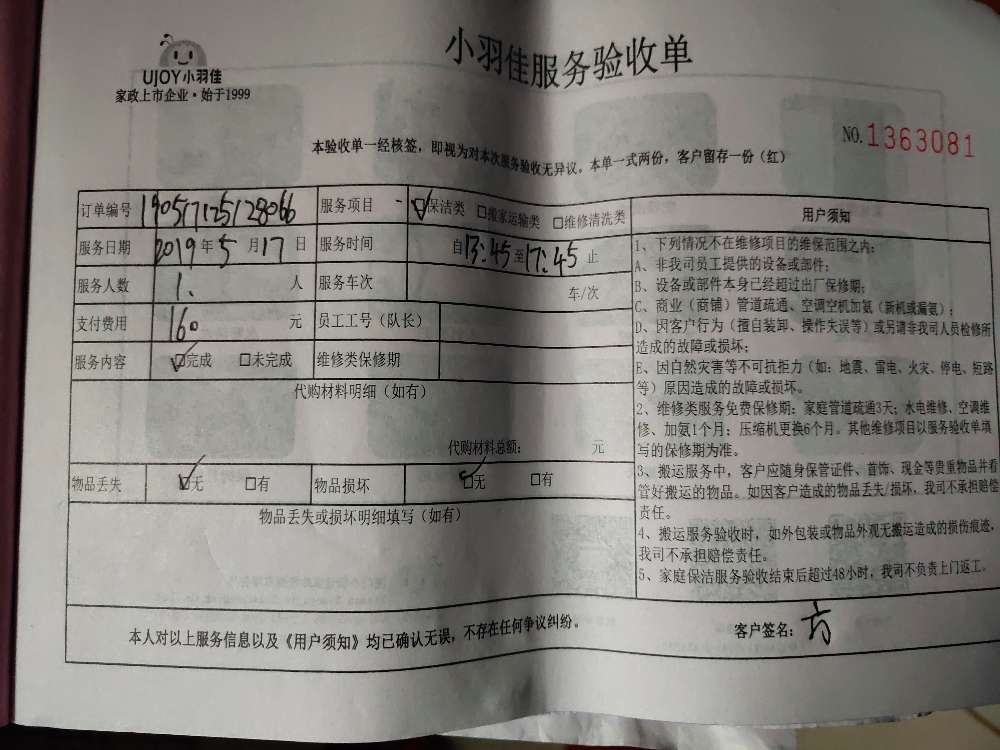 UJOY小羽佳
家政上市企业·始于1999
小羽佳服务验收单
NO.1363081
本验收单一经核签，即视为对本次服务验收无异议。本单一式两份，客户留存一份（红）
订单编号 190517125128066 服务项目 ☑保洁类 □搬家运输类 □维修清洗类
服务日期 2019年5月17日 服务时间 自13:45至17:45止
服务人数 1、人 服务车次 车/次
支付费用 160元 员工工号（队长）
服务内容 ☑完成 □未完成 维修类保修期
代购材料明细（如有）
代购材料总额： 元
物品丢失 ☑无 □有 物品损坏 ☑无 □有
物品丢失或损坏明细填写（如有）
用户须知
1、下列情况不在维修项目的维保范围之内：
A、非我司员工提供的设备或部件；
B、设备或部件本身已经超过出厂保修期；
C、商业（商铺）管道疏通、空调空机加氨（新机或漏氨）；
D、因客户行为（擅自装卸、操作失误等）或另请非我司人员检修所
造成的故障或损坏；
E、因自然灾害等不可抗拒力（如：地震、雷电、火灾、停电、短路
等）原因造成的故障或损坏。
2、维修类服务免费保修期：家庭管道疏通3天；水电维修、空调维
修、加氨1个月；压缩机更换6个月。其他维修项目以服务验收单填
写的保修期为准。
3、搬运服务中，客户应随身保管证件、首饰、现金等贵重物品并看
管好搬运的物品。如因客户造成的物品丢失/损坏，我司不承担赔偿
责任。
4、搬运服务验收时，如外包装或物品外观无搬运造成的损伤痕迹，
我司不承担赔偿责任。
5、家庭保洁服务验收结束后超过48小时，我司不负责上门返工。
本人对以上服务信息以及《用户须知》均已确认无误，不存在任何争议纠纷。
客户签名：